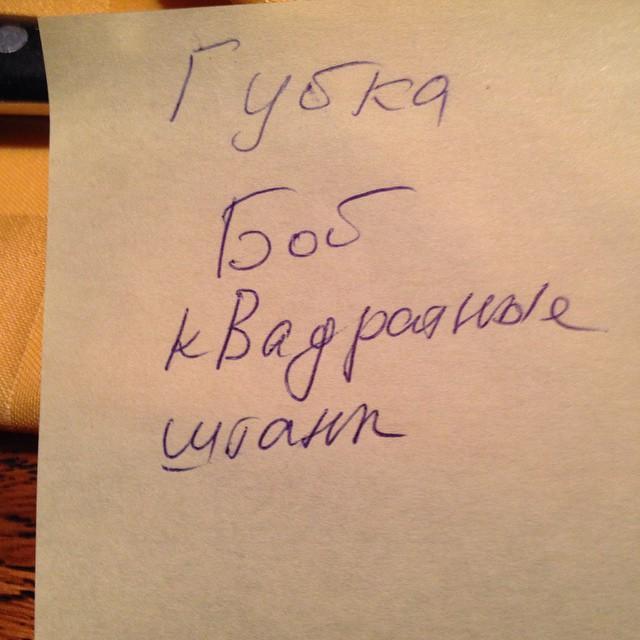 Губка
Боб
кВадратные
штаны